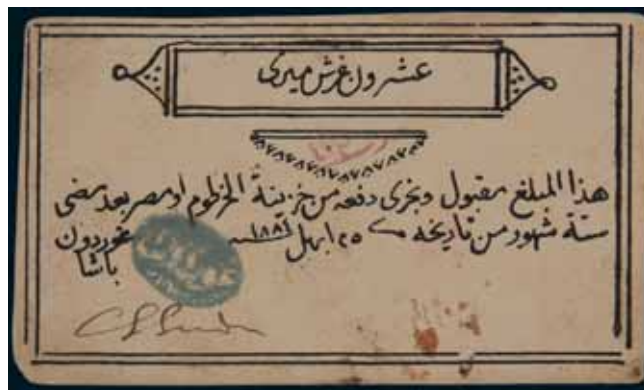 عشرون غرش ميرى
هذا المبلغ مقبول ويجرى دفعه من خزينة الخرطوم او مصر بعد مضى
ستة شهور من تاريخه ٢٥ ابريل ١٨٨٤ غوردون
باشا